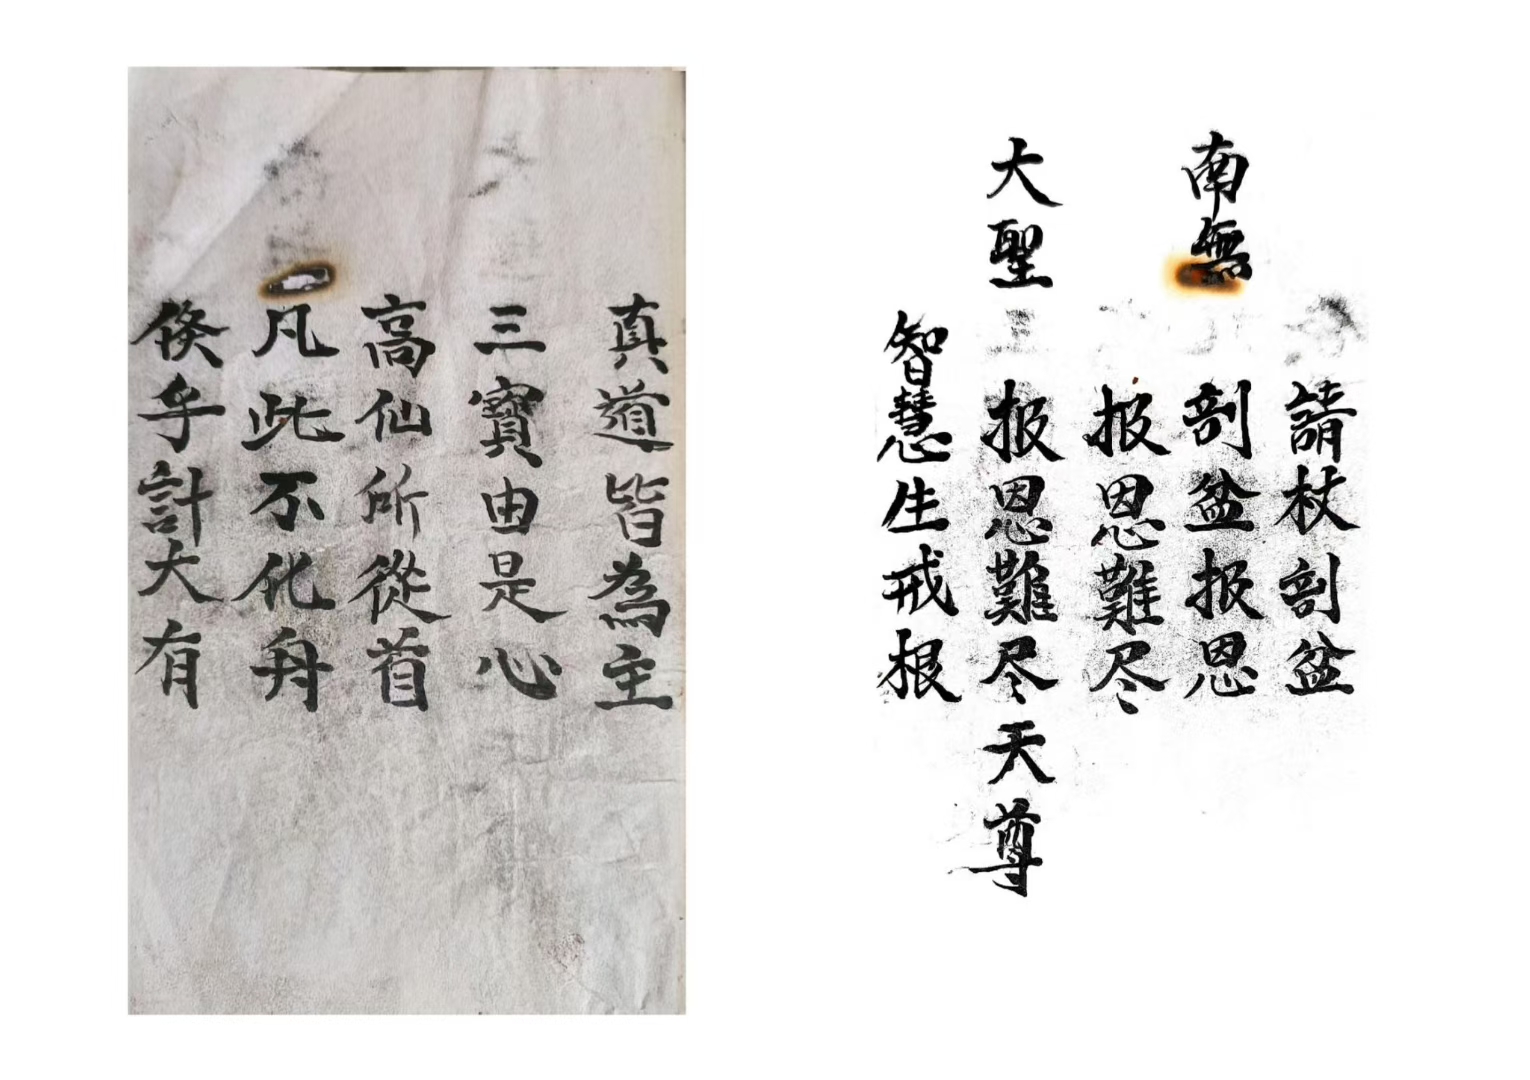 請杖剖盆
南無 剖盆报恩
报恩難尽
大聖 报恩難尽天尊
智慧生戒根
真道皆為主
三寶由是心
高仙所從首
凡此不化舟
倏乎計大有